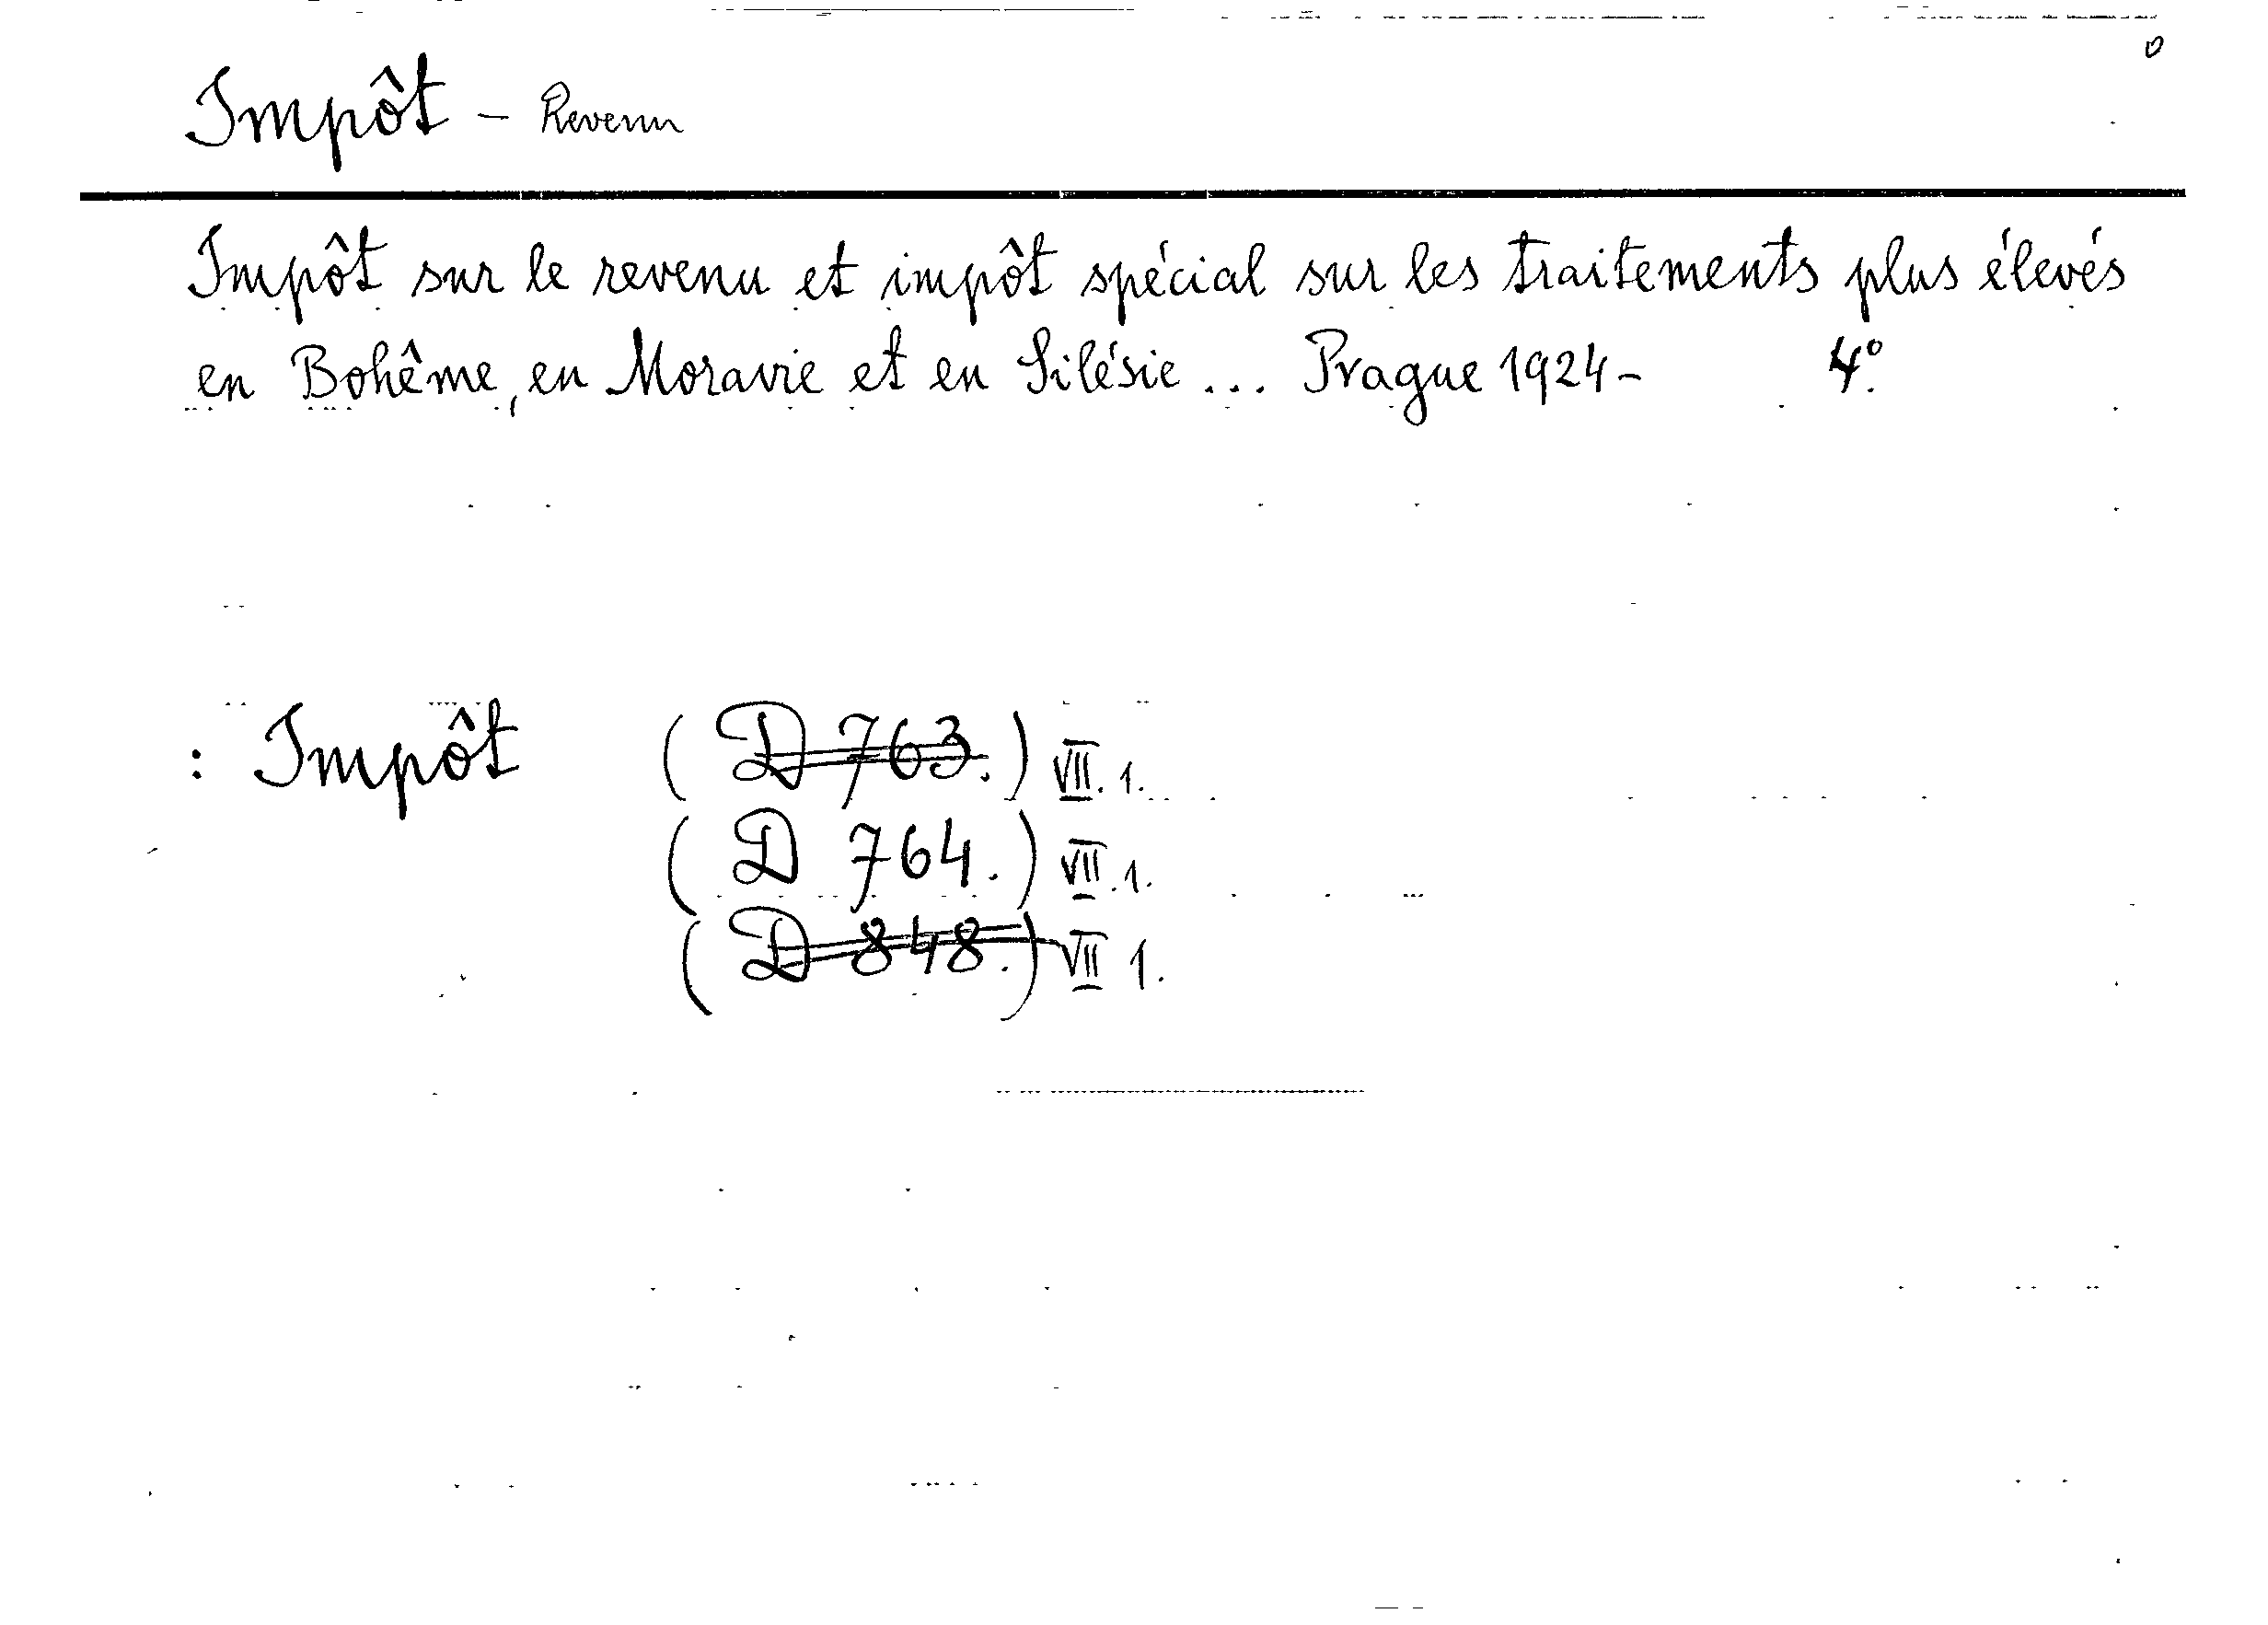 Impôt - Revenu
Impôt sur le revenu et impôt spécial sur les traitements plus élevés
en Bohême, en Moravie et en Silésie ... Prague 1924- 4°.
: Impôt (D 763.) VII. 1.
(D 764.) VII. 1.
(D 848.) VII 1.